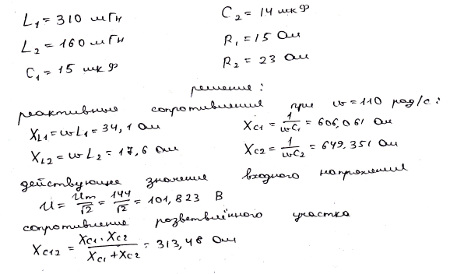 L₁ = 310 мГн C₂ = 14 мкФ
L₂ = 160 мГн R₁ = 15 Ом
C₁ = 15 мкФ R₂ = 23 Ом
решение:
реактивные сопротивления при w = 110 рад/с:
X_L1 = wL₁ = 34,1 Ом X_C1 = 1/wC₁ = 606,061 Ом
X_L2 = wL₂ = 17,6 Ом X_C2 = 1/wC₂ = 649,351 Ом
действующее значение входного напряжения
U = Um/√2 = 144/√2 = 101,823 В
сопротивление разветвлённого участка
X_C12 = X_C1 · X_C2 / X_C1 + X_C2 = 313,48 Ом